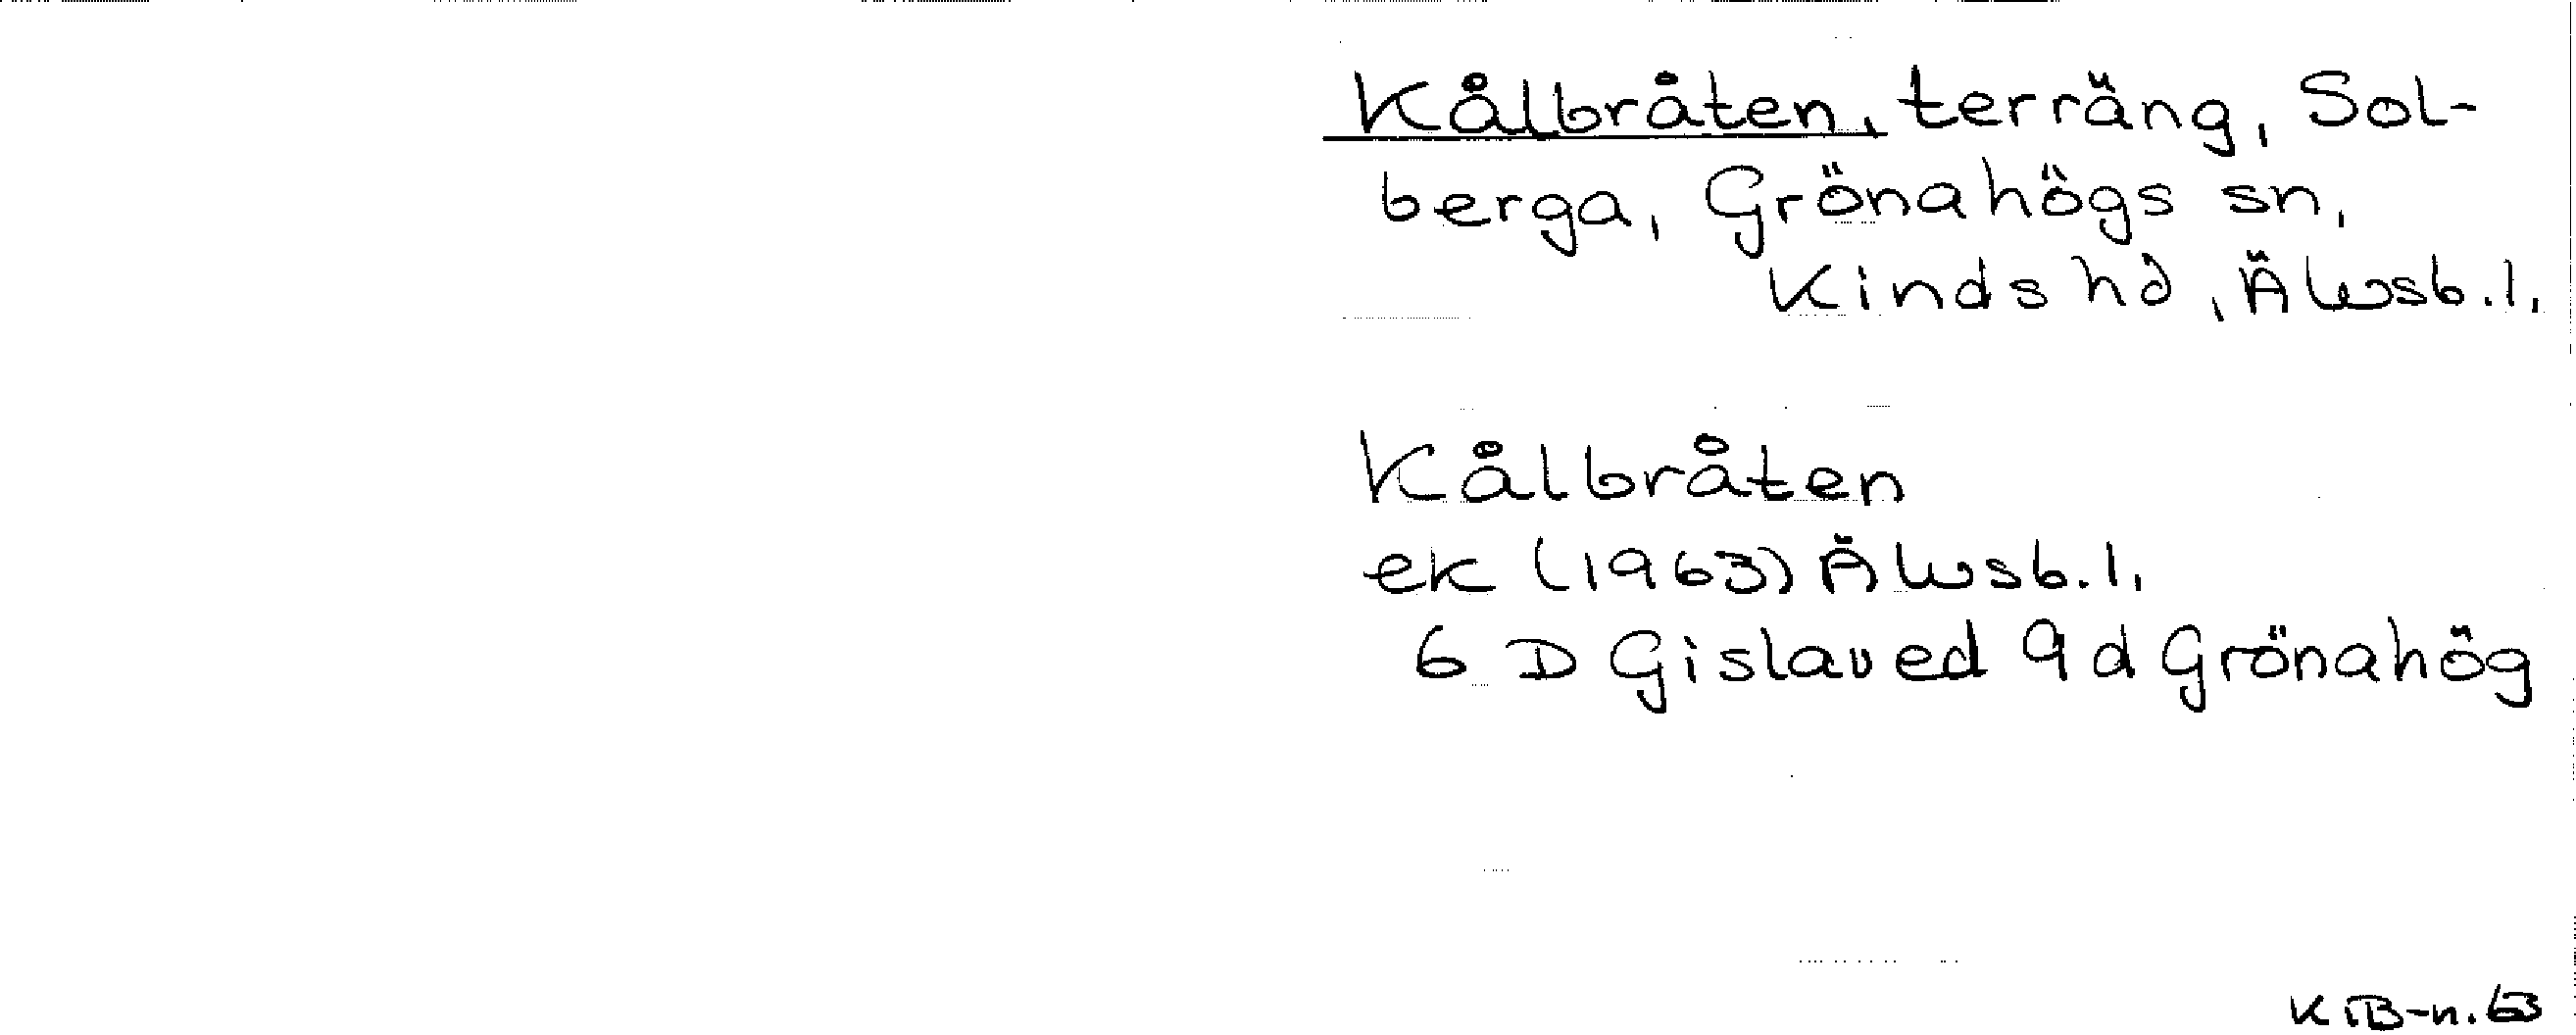 Kålbråten, terräng, Sol-
berga, Grönahögs sn,
Kinds hd, Älvsb.l.
Kålbråten
ek (1963) Älvsb.l.
6 D Gislaved 9d Grönahög
K B-n. 63